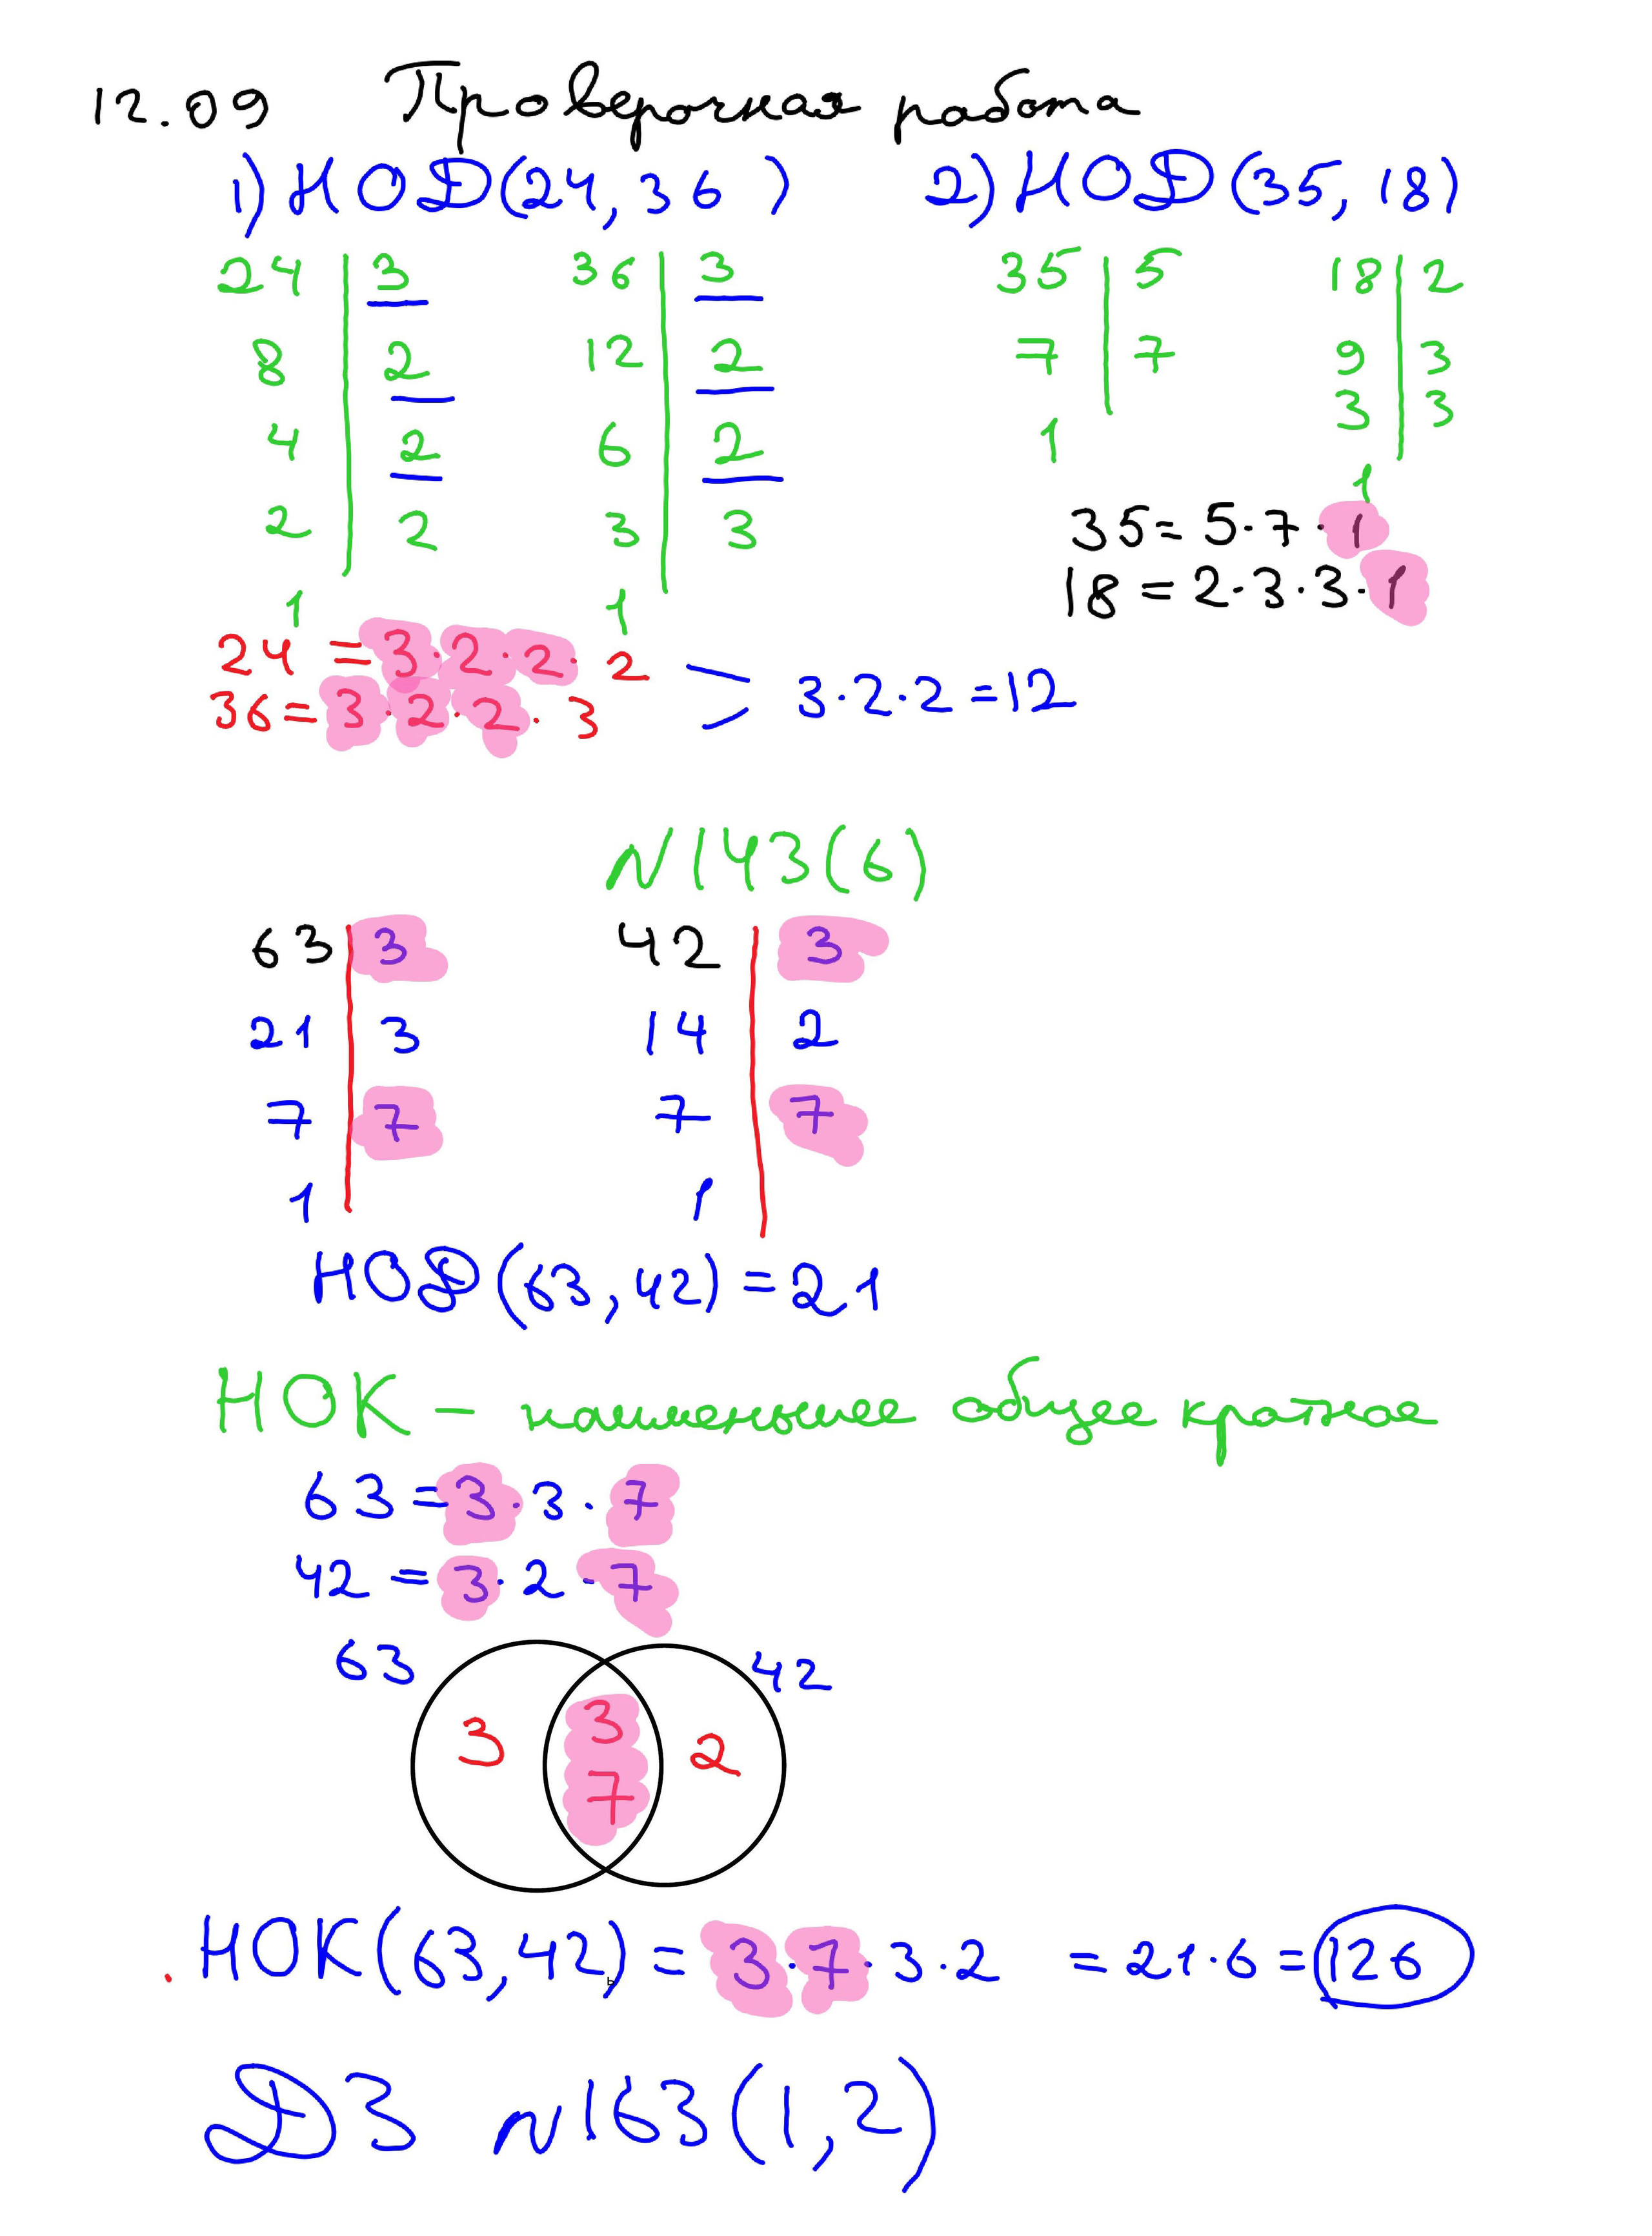 12.09 Проверочная работа
1) НОД(24, 36) 2) НОД(35, 18)
24 3 36 3 35 5 18 2
8 2 12 2 7 7 9 3
4 2 6 2 1 3 3
2 2 3 3 1
1 1
35 = 5·7·1
18 = 2·3·3·1
24 = 3·2·2·2
36 = 3·2·2·3
3·2·2 = 12
N143(6)
63 3 42 3
21 3 14 2
7 7 7 7
1 1
НОД(63, 42) = 21
НОК - наименьшее общее кратное
63 = 3·3·7
42 = 3·2·7
63 42
3 3 2
7
НОК(63, 42) = 3·7·3·2 = 21·6 = 126
ДЗ N163(1, 2)